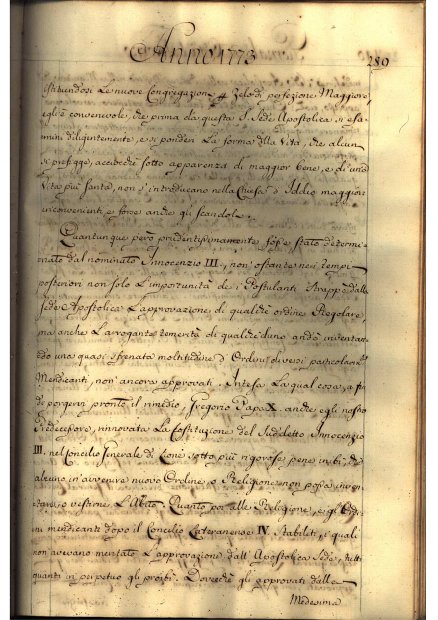 Anno 1773
289
stituendosi le nuove Congregazione p. Zelo di perfezione Maggiore,
egli è convenevole, che prima da questa S. Sede Apostolica si esa-
mini diligentemente, e si ponderi la forma della Vita, che alcun
si prefigge, acciochè sotto apparenza di maggior bene, e di una
Vita più santa, non s'introducano nella Chiesa d'Iddio maggiori
inconvenienti, e forse anche gli Scandoli.
Quantunque però prudentissimamente fosse stato determi-
nato dal nominato Innocenzio III., non ostante nei tempi
posteriori non solo l'importunità de i Postulanti strappò dalla
Sede Apostolica l'approvazione di qualche ordine Regolare,
ma anche l'arrogante temerità di qualcheduno andò inventan-
do una quasi sfrenata moltitudine d'Ordini diversi particolarm.
Mendicanti, non ancora approvati. Intesa la qual cosa, a fin
di porgervi pronto il rimedio, Gregorio Papa X. anche egli nostro
Predecessore, rinnovata la Costituzione del sudiletto Innocenzio
III. nel Concilio Generale di Lione sotto più rigorose pene inibì, che
alcuno in avvenire nuovo Ordine, o Religione non possa inven-
tare, o vestirne l'Abito. Quanto poi alle Religione, e gli Ordi-
ni mendicanti dopo il Concilio Lateranense IV. stabiliti, i quali
non avevano meritato l'approvazione dall'Apostolica Sede, tutti
quanti in perpetuo gli proibì. Dovecchè gli approvati dalla
Medesima